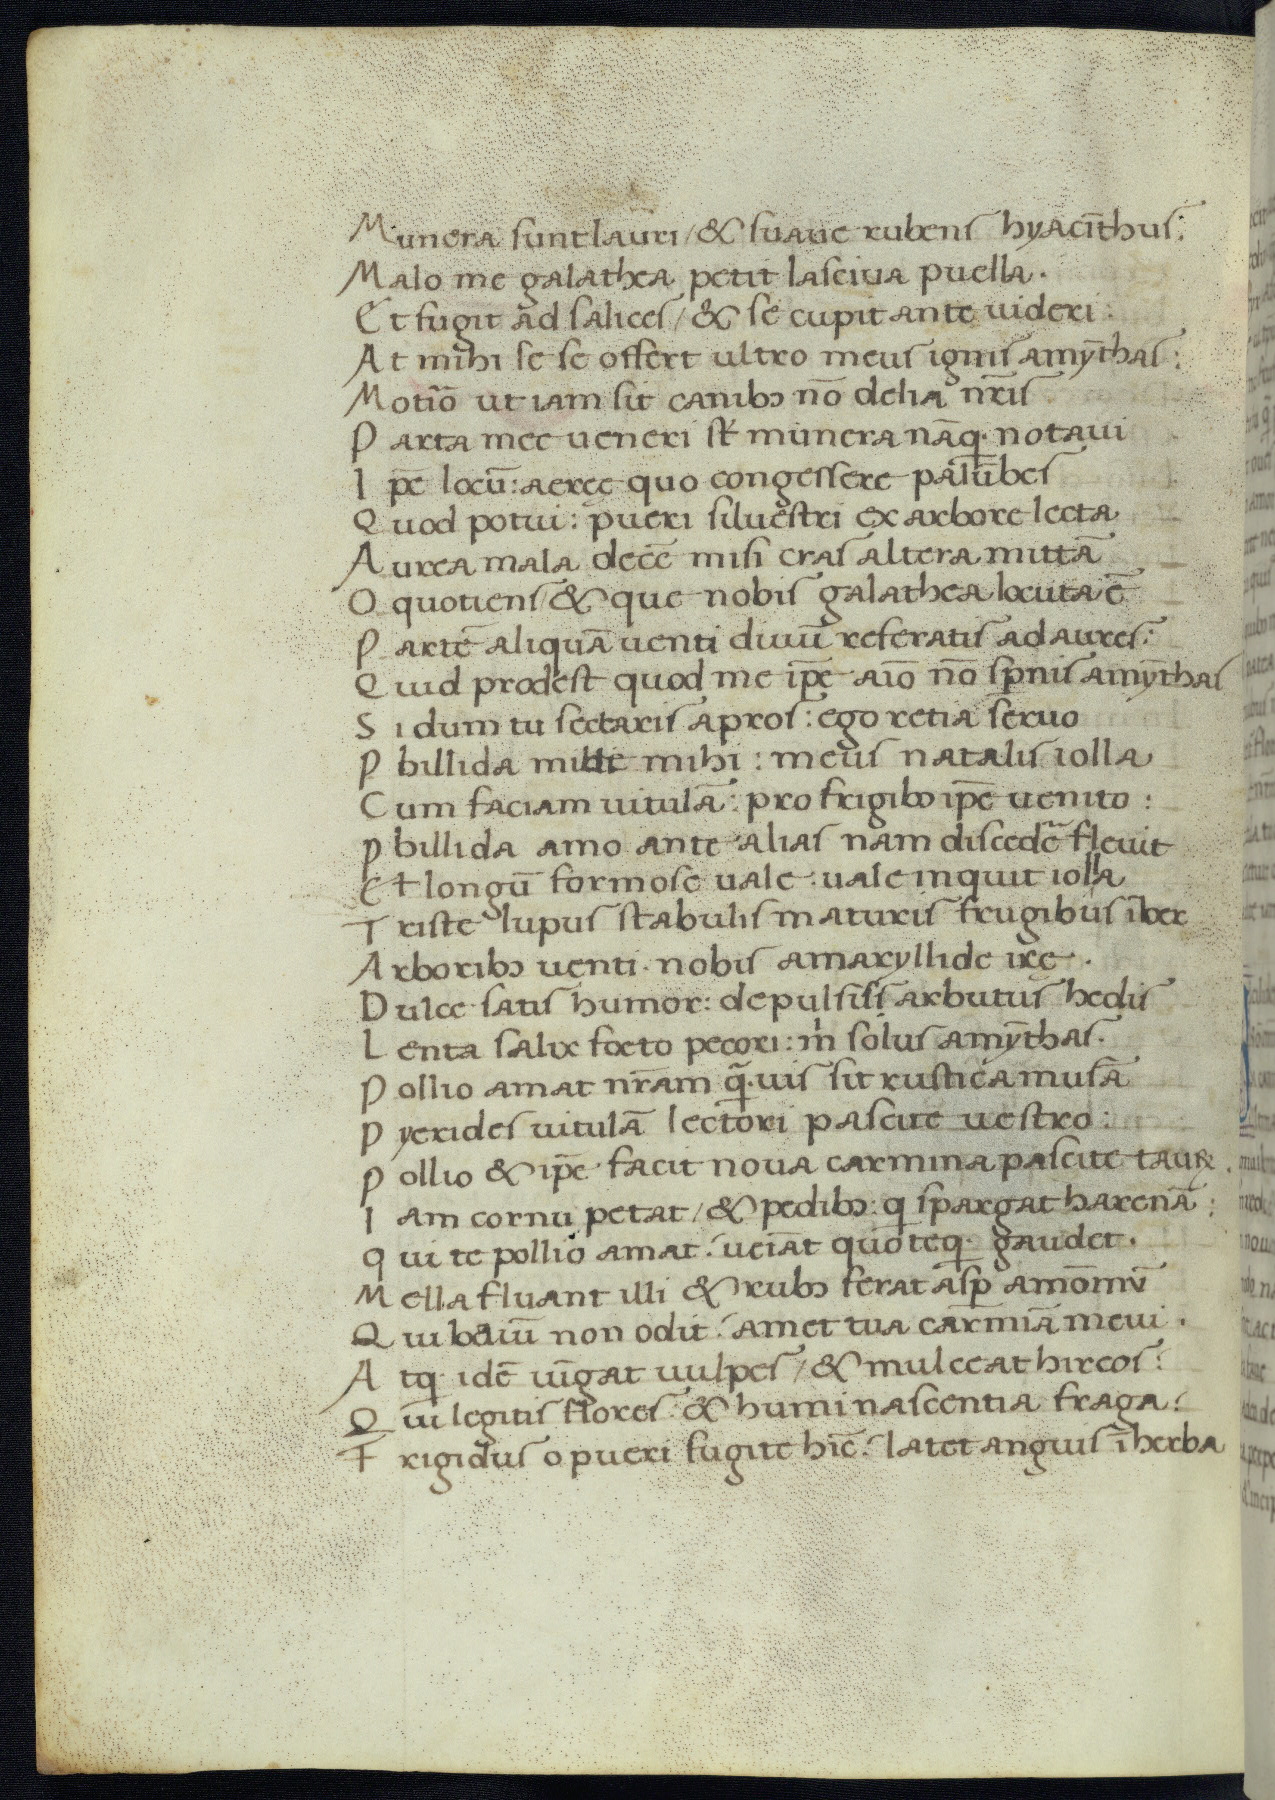 Munera sunt lauri / & suaue rubens hyacīthus:
Malo me galathea petit lasciua puella.
Et fugit ad salices / & se cupit ante uideri:
At mihi se se offert ultro meus ignis amȳthas:
Motīō ut iam sit canibꝫ nō delia nr̄is
Parta meę ueneri st̄ munera nāq; notaui
Ip̄e locū: aeręę quo congessere palūbes
Quod potui: pueri siluestri ex arbore lecta
Aurea mala decē misi cras altera mittā
O quotiens / & que nobis galathea locuta ē
Partē aliquā uenti diuū referatis ad aures:
Quid prodest quod me ip̄e aīo nō sp̄nis amȳthas
Si dum tu sectaris apros: ego retia seruo
Phillida mitte mihi: meus natalis iolla
Cum faciam uitulā: pro frigibꝫ ip̄e uenito:
Phillida amo ante alias nam discedē fleuit
Et longū formose uale: uale inquit iolla
Triste lupus stabulis maturis frugibus īber
Arboribꝫ uenti. nobis amaryllide irę.
Dulce satis humor: depulsis arbutus hedis
Lenta salix foeto pecori: m̄ solus amȳthas.
Pollio amat nr̄am q̄.uis sit rustica musā
Pyerides uitulā lectori pascite uestro:
Pollio & ip̄e facit noua carmina pascite tauꝝ.
Iam cornu petat / & pedibꝫ: q spargat harenā:
Qui te pollio amat: ueīat quo teq; gaudet.
Mella fluant illi & rubꝫ ferat asp̄ amōmū
Qui bauiū non odit: amet tua carmīā meui.
Atq; idē iūgat uulpes / & mulceat hircos:
Qui legitis flores: & humi nascentia fraga:
Frigidus o pueri fugite hīc: latet anguis ī herba